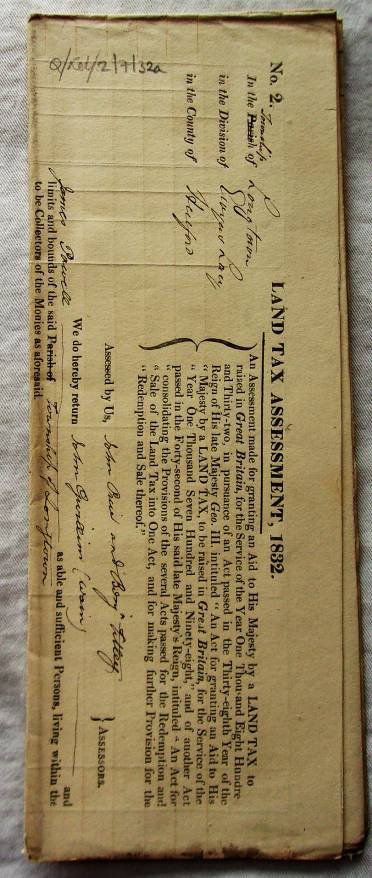 Q/Rel/2/7/32a
No. 2.
LAND TAX ASSESSMENT, 1832.
Township
In the Parish of Longtown
in the Division of Ewyas Lacy
in the County of Hereford
An Assessment made for granting an Aid to His Majesty by a LAND TAX to
raised in Great Britain, for the Service of the Year One Thousand Eight Hundre
and Thirty-two, in pursuance of an Act passed in the Thirty-eighth Year of the
Reign of His late Majesty Geo. III. intituled "An Act for granting an Aid to His
"Majesty by a LAND TAX, to be raised in Great Britain, for the Service of the
"Year One Thousand Seven Hundred and Ninety-eight," and of another Act
passed in the Forty-second of His said late Majesty's Reign, intituled "An Act for
"consolidating the Provisions of the several Acts passed for the Redemption and
"Sale of the Land Tax into One Act, and for making further Provision for the
"Redemption and Sale thereof."
Assessed by Us, John and Benjn
ASSESSORS.
We do hereby return John and
James Powell as able and sufficient Persons, living within the
limits and bounds of the said Parish of Township of Longtown
to be Collectors of the Monies as aforesaid.